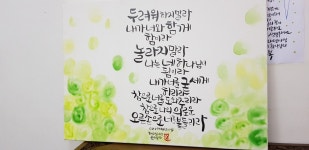 두려워하지말라
내가너와함께
함이라
놀라지말라
나는네하나님이
됨이라
내가너를굳세게
하리라
참으로너를도와주리라
참으로나의의로운
오른손으로너를붙들리라